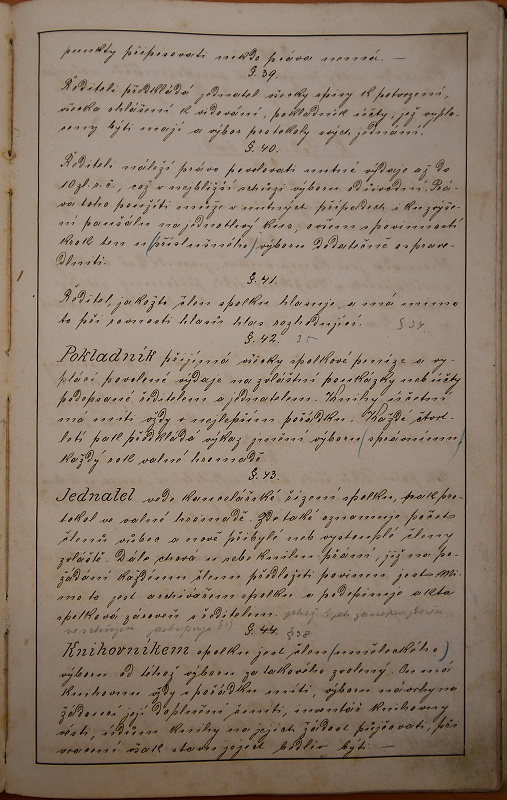 punkty přepisovati nikdo práva nemá. —
§. 39.
Řediteli předkládá jednatel všecky spisy k potvrzení,
všecka ohlášení k vidování, pokladník účty, jež vypla-
ceny býti mají a výbor protokoly svých jednání.
§. 40.
Řediteli náleží právo povolovati nutné výdaje až do
10 zl. r. č., což v nejbližší schůzi výboru odůvodní. Prá-
va toho použíti může v nutných případech i ku zvýše-
ní paušálu na jednotlivý kus, ovšem s povinností
krok ten u (příslušného) výboru dodatečně osprave-
dlniti.
§. 41.
Ředitel, jakožto člen spolku hlasuje, a má mimo
to při rovnosti hlasů hlas rozhodující. § 34
§. 42. 35
Pokladník přijímá všecky spolkové peníze a vy-
plácí povolené výdaje na zvláštní poukázky neb účty
podepsané ředitelem a jednatelem. Knihy účetní
má míti vždy v nejlepším pořádku. Každé čtvrt-
letí pak předkládá výkaz jmění výboru (správnímu)
každý rok valné hromadě.
§. 43.
Jednatel vede kancelářské řízení spolku, pak pro-
tokol ve valné hromadě. Zde také oznamuje počet
členů vůbec a nově přibylé neb vystouplé členy
zvláště. Dále chová u sebe knihu přání, již na po-
žádání každému členu předložiti povinen jest. Mi-
mo to jest archivářem spolku a podepisuje akta
spolková zároveň s ředitelem.
§. 44. § 38
Knihovníkem spolku jest člen (uměleckého)
výboru od téhož výboru za takového zvolený. On má
knihovnu vždy v pořádku míti, výboru návrhy na
žádoucí její doplnění činiti, inventář knihovny
vésti, údům knihy na jejich žádost půjčovati, při
vracení však stavu jejich bedliv býti. —